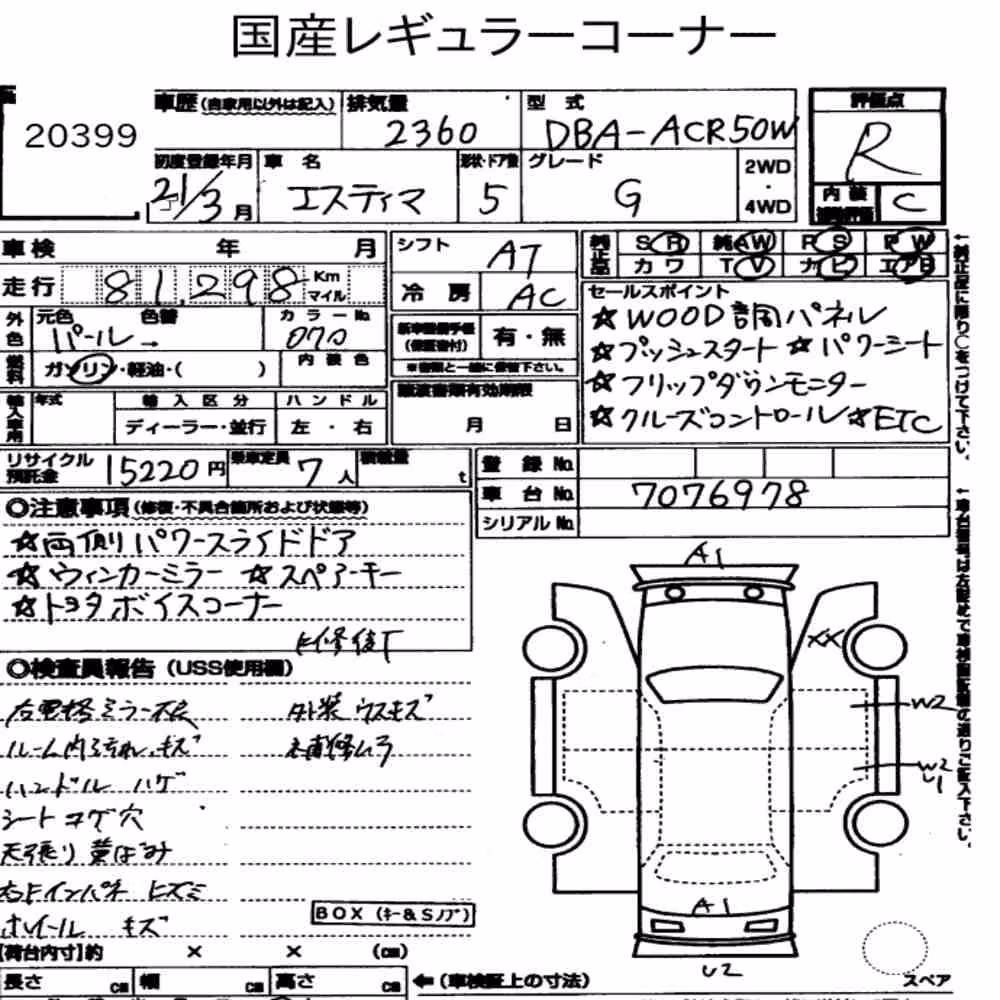 国産レギュラーコーナー
20399
車歴 (自家用以外は記入)
排気量 2360
型式 DBA-ACR50W
評価点 R
初度登録年月 21/3月
車名 エスティマ
形状・ドア数 5
グレード G
2WD・4WD
内装 C
車検 年 月
シフト AT
純正品 SR 純AW PS PW
カワ TV ナビ エアB
走行 81,298 Km マイル
冷房 AC
セールスポイント
☆WOOD調パネル
☆プッシュスタート ☆パワーシート
☆フリップダウンモニター
☆クルーズコントロール ☆ETC
外色 元色 パール→ 色替
カラーNo. 070
新車整備手帳(保証書付) 有・無
※書類と一緒に保管下さい。
燃料 ガソリン・軽油・( )
内装色
譲渡書類有効期限 月 日
輸入車用 年式
輸入区分 ディーラー・並行
ハンドル 左・右
リサイクル預託金 15220円
乗車定員 7人
積載量 t
登録No.
車台No. 7076978
シリアルNo.
←純正品に限り○をつけて下さい。
←車台番号は左詰めで車検証記載の通りご記入下さい。
◎注意事項 (修復・不具合箇所および状態等)
☆両側パワースライドドア
☆ウィンカーミラー ☆スペアーキー
☆トヨタボイスコーナー
◎検査員報告 (USS使用欄)
外装ウスキズ
ハンドル ハゲ
シートコゲ穴
天張り黄ばみ
ホイール キズ
BOX (キー&Sノブ)
A1
XX
W2
W2
U1
A1
U2
スペア
【荷台内寸】約 × × (cm)
長さ cm 幅 cm 高さ cm ←(車検証上の寸法)